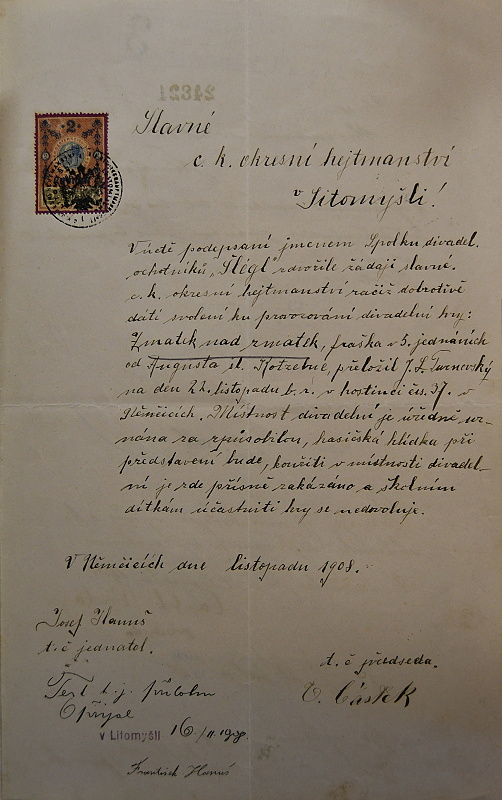 24321
2
Slavné
c. k. okresní hejtmanství
v Litomyšli!
V úctě podepsaní jmenem Spolku divadel.
ochotníků „Štégl" zdvořile žádají slavné.
c. k. okresní hejtmanství račiž dobrotivě
dáti svolení ku provozování divadelní hry:
Zmatek nad zmatek, fraška v 5. jednáních
od Augusta sl. Kotzebue, přeložil J. L. Turnovský
na den 22. listopadu b. r. v hostinci čís. 37. v
Němčicích. Místnost divadelní je úředně uz-
nána za způsobilou, hasičská hlídka při
představení bude, kouřiti v místnosti divadel-
ní je zde přísně zakázáno a školním
dítkám účastniti hry se nedovoluje.
V Němčicích dne listopadu 1908.
Josef Hanuš
t. č. jednatel.
t. č. předseda.
Částek
Text t. j. přílohu
přijal
v Litomyšli 16/11 1908.
František Hanuš